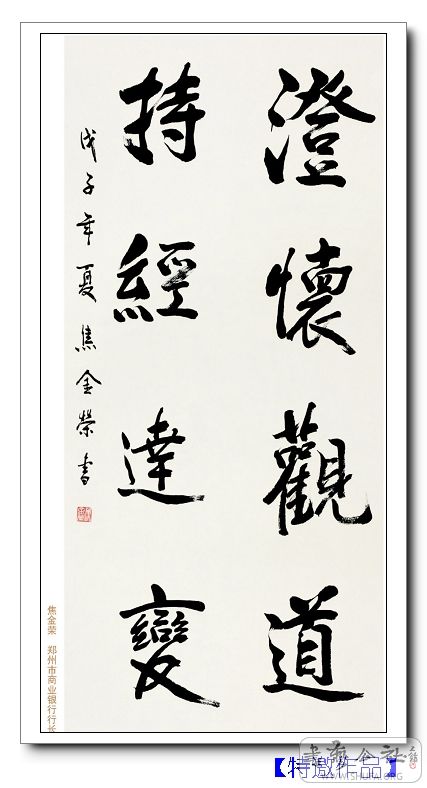 澄懷觀道
持經達變
戊子年夏焦金榮書
焦金荣 郑州市商业银行行长
【特邀作品】
WWW.SHUFA.ORG